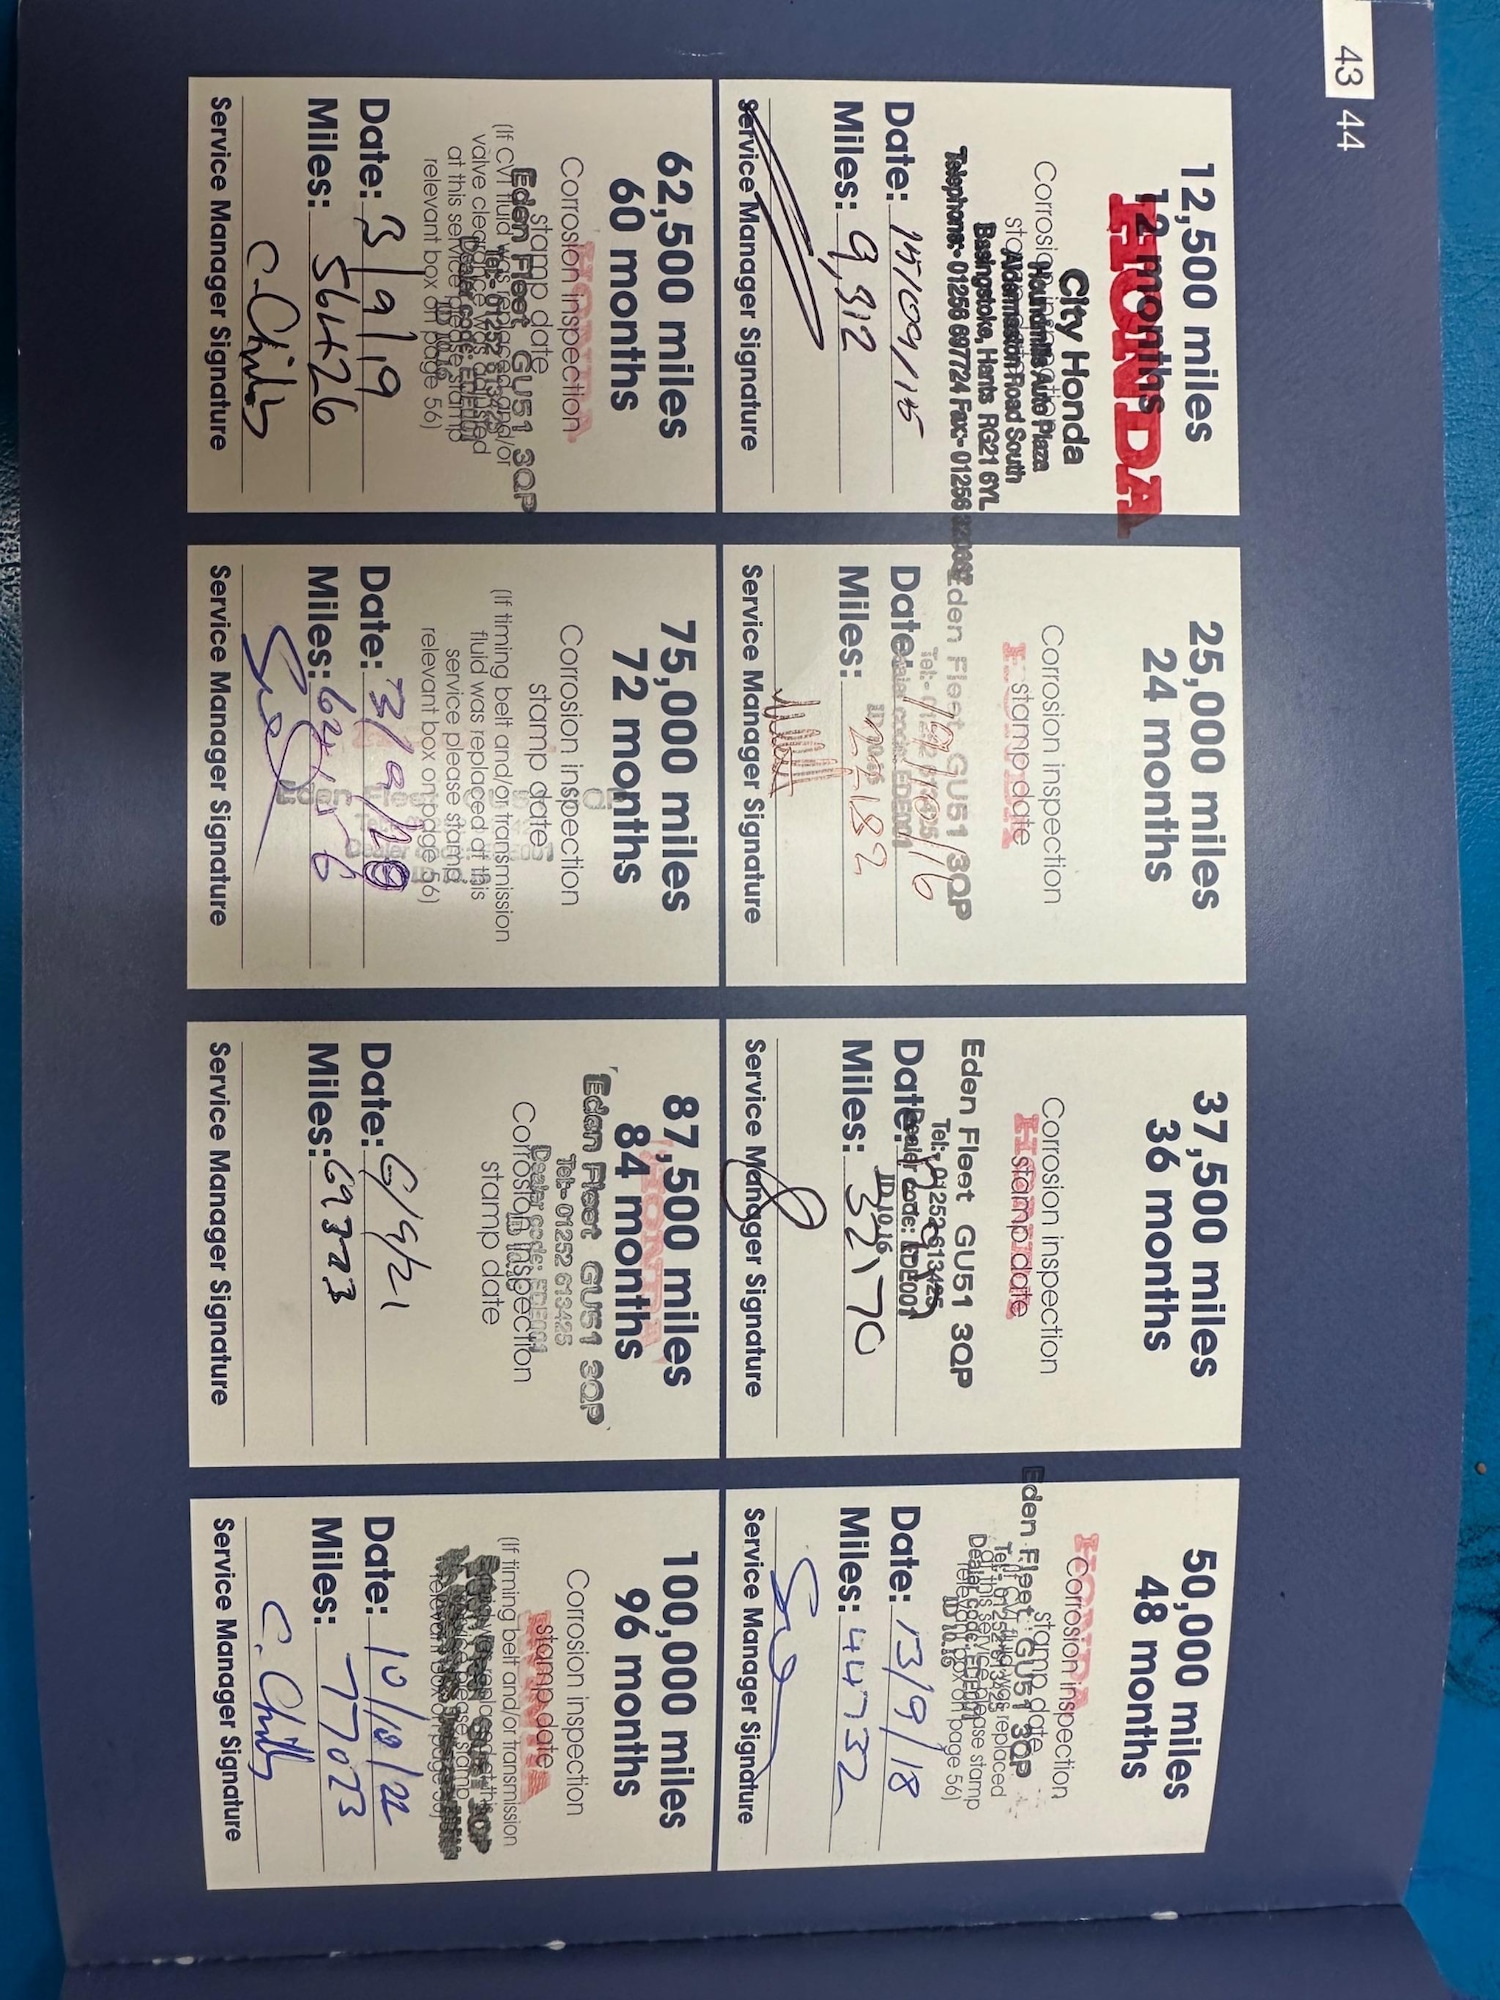 43 44
12,500 miles
12 months
HONDA
City Honda
Corrosion inspection
Houndmills Auto Plaza
stamp date
Aldermaston Road South
Basingstoke, Hants RG21 6YL
Telephone:- 01256 697724 Fax:- 01256
Date: 15/09/15
Miles: 9,312
Service Manager Signature
25,000 miles
24 months
Corrosion inspection
HONDA
stamp date
Eden Fleet GU51 3QP
Tel:- 01252 613425
Dealer code: EDE001
ID 10.16
Date:
Miles:
Service Manager Signature
37,500 miles
36 months
Corrosion inspection
HONDA
stamp date
Eden Fleet GU51 3QP
Tel:- 01252 613425
Dealer code: EDE001
ID 10.16
Date:
Miles: 32170
Service Manager Signature
50,000 miles
48 months
HONDA
Corrosion inspection
stamp date
Eden Fleet GU51 3QP
Tel:- 01252 613425
was replaced
at this service please stamp
Dealer code: EDE001
relevant box on page 56)
ID 10.16
Date: 13/9/18
Miles: 44732
Service Manager Signature
62,500 miles
60 months
HONDA
Corrosion inspection
stamp date
Eden Fleet GU51 3QP
(If CVT fluid was replaced and/or
Tel:- 01252 613425
valve clearance was adjusted
Dealer code: EDE001
at this service please stamp
ID 10.16
relevant box on page 56)
Date: 3/9/19
Miles: 56426
Service Manager Signature
75,000 miles
72 months
Corrosion inspection
stamp date
(If timing belt and/or transmission
fluid was replaced at this
service please stamp
relevant box on page 56)
Eden Fleet
Dealer
Date: 3/9/20
Miles:
Service Manager Signature
87,500 miles
84 months
HONDA
Eden Fleet GU51 3QP
Tel:- 01252 613425
Dealer code: EDE001
Corrosion inspection
stamp date
Date: 6/9/21
Miles: 69323
Service Manager Signature
100,000 miles
96 months
Corrosion inspection
HONDA
stamp date
(If timing belt and/or transmission
Date: 10/10/22
Miles: 77023
Service Manager Signature